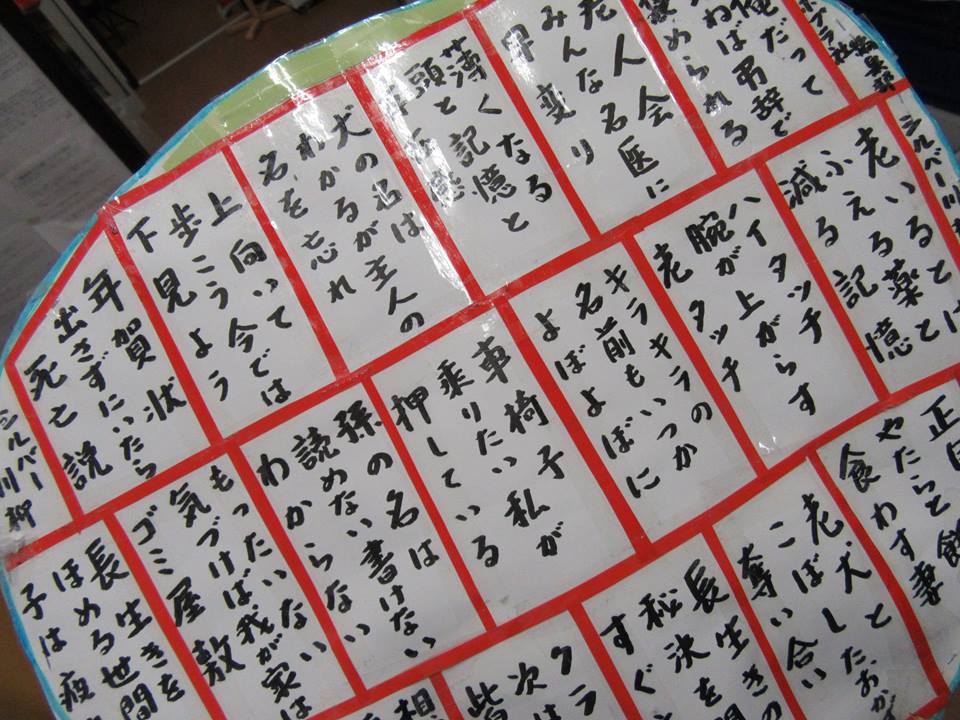 俺だって
ねば弔辞で
められる
老人会
みんな名医に
早変り
薄くなる
頭と記憶と
犬の名は
わかるが主人の
名を忘れ
上向いて
歩こう今では
下見よう
年賀状
出さずにいたら
死亡説
シルバー川柳
シルバー川
老いるとは
ふえる薬と
減る記憶
ハイタッチ
腕が上がらず
老タッチ
キラキラの
名前もいつか
よぼよぼに
車椅子
乗りたい私が
押している
孫の名は
読めない書けない
わからない
もったいない
気づけば我が家は
ゴミ屋敷
長生きを
ほめる世間
子は疲
正
やたらと飲
食わす妻
老犬と
こぼしたおか
奪い合い
長生き
秘決を
すぐ
クラ
次は
皆
想